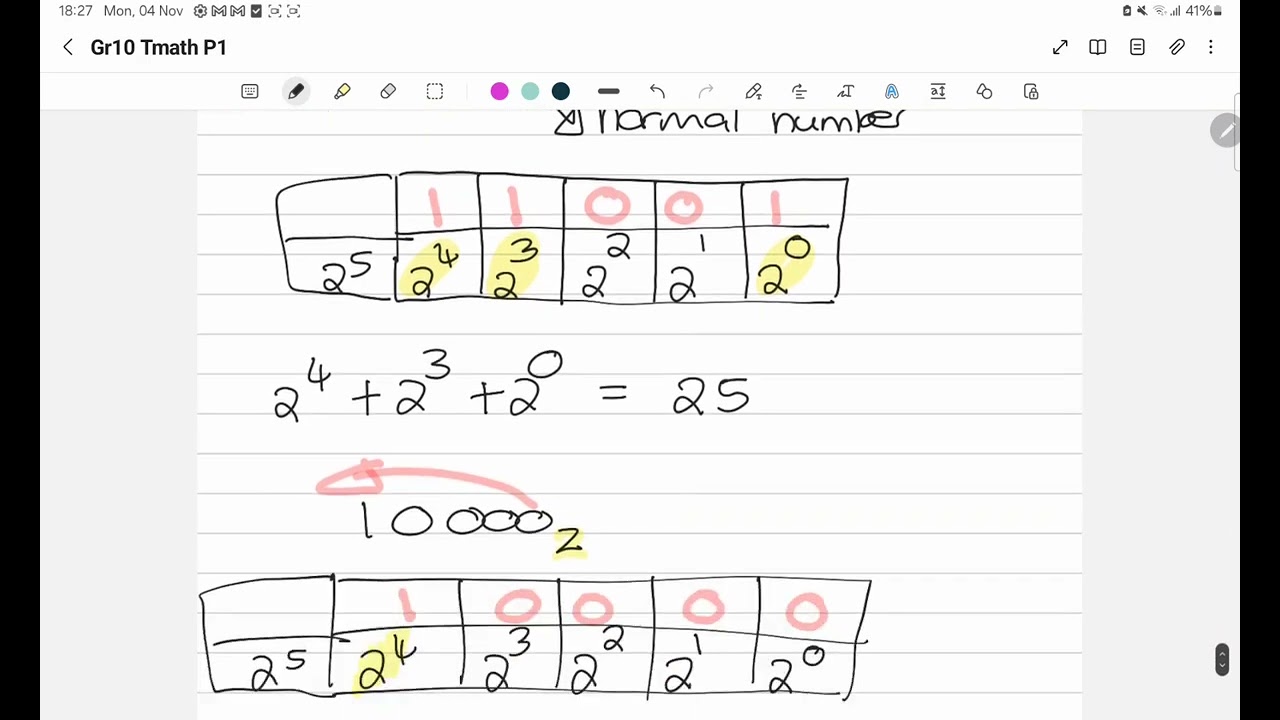 18:27 Mon, 04 Nov 41%
Gr10 Tmath P1
normal number
1 1 0 0 1
2⁵ 2⁴ 2³ 2² 2¹ 2⁰
2⁴ + 2³ + 2⁰ = 25
10000₂
1 0 0 0 0
2⁵ 2⁴ 2³ 2² 2¹ 2⁰